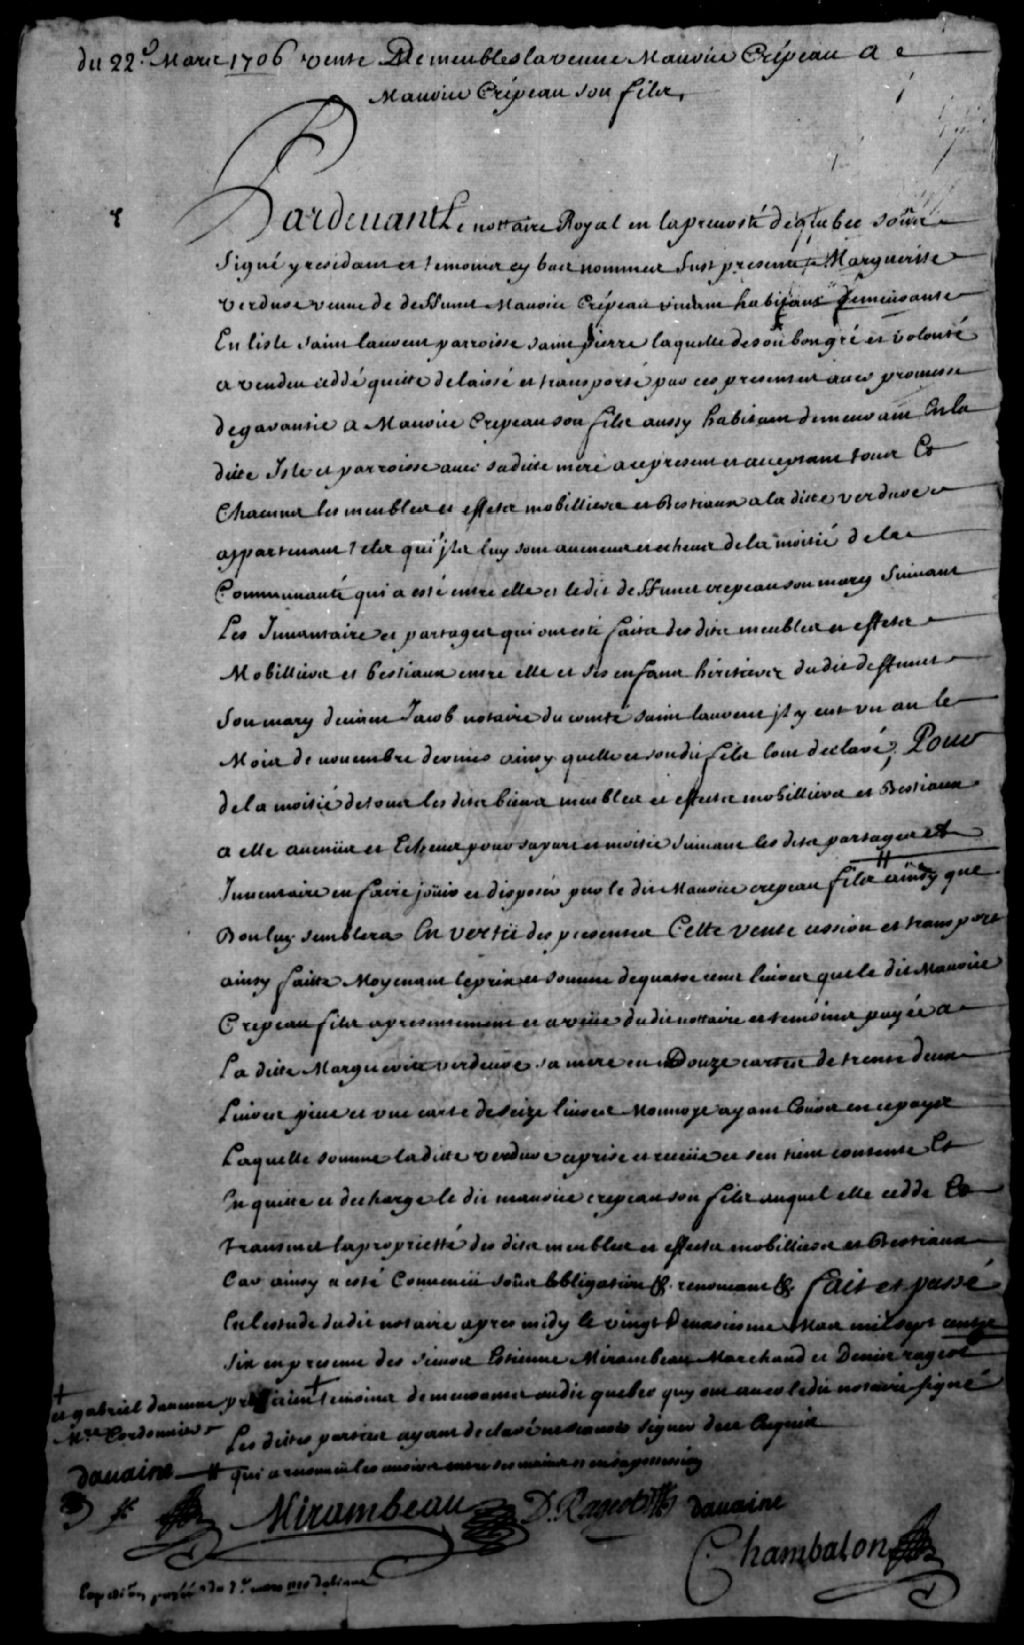 du 22.e Mars 1706 vente De meubles la veuve Mauvice Crépeau a
Mauvice Crépeau son filz.
Pardevant Le nottaire Royal en la prevosté de quebec soûs
signé y residant et temoins cy bas nommez Fust presente Marguerite
verdure veuve de deffunct Mauvice Crépeau vivant habitant demeurante
En lisle saint laurent parroisse saint pierre laquelle de son bon gré et volonté
a vendu ceddé quitté delaissé et transporté par ces presentes avec promesse
de garantie a Mauvice Crepeau son filz aussy habitant demeurant En la
ditte Isle et parroisse avec sa ditte mere a ce present et acceptant tous Et
Chacuns les meubles et effets mobilliers et Bestiaux a la ditte verdure
appartenant telz qu'jlz luy sont avenus et echeus de la moitié de la
Communauté qui a esté entre elle et le dit deffunct crepeau son mary suivant
Les Inventaire et partages qui ont esté faits des dits meubles et effets
Mobilliers et bestiaux entre elle et ses enfans héritiers du dit deffunct
son mary devant Jacob notaire du comté saint laurent jl y eut un an le
Mois de novembre dernier ainsy quelle et son dit filz lont declaré, Pour
de la moitié de tous les dits biens meubles et effects mobilliers et Bestiaux
a elle avenüe et Echeue pour sa part et moitié suivant les dits partages et
Inventaire en faire joüir et disposer par le dit Mauvice crepeau filz ainsy que
Bon luy semblera En vertü des presentes Cette vente cession et transport
ainsy faitte Moyenant le prix et somme de quatre cent livres que le dit Mauvice
Crepeau filz a presentement et a veüe du dit nottaire et temoins payée a
La ditte Marguerite verdure sa mere en Douze cartes de trente deux
Livres piece et une carte de seize livres Monnoye ayant Cours en ce payis
Laquelle somme la ditte verdure a prise et receüe et sen tient contente Et
En quitte et decharge le dit mauvice crepeau son filz auquel elle cedde Et
transmet la proprietté des dits meubles et effects mobilliers et Bestiaux
Car ainsy a esté Convenü soûs lobligation &. renonceant &. fait et passé
En lestude du dit notaire apres midy le vingt deuxiesme Mars mil sept cents
six en presence des sieurs Estienne Mirambeau Marchand et Denis rageot
+ et gabriel davaine
praticien + temoins demeurans au dit quebec quy ont avec le dit notaire signé
Mtre Cordonnier
Les dittes parties ayant declaré ne scavoir signer de ce Enquis
davaine
# qui a remis les
Mirambeau D. Rageot davaine
Chambalon